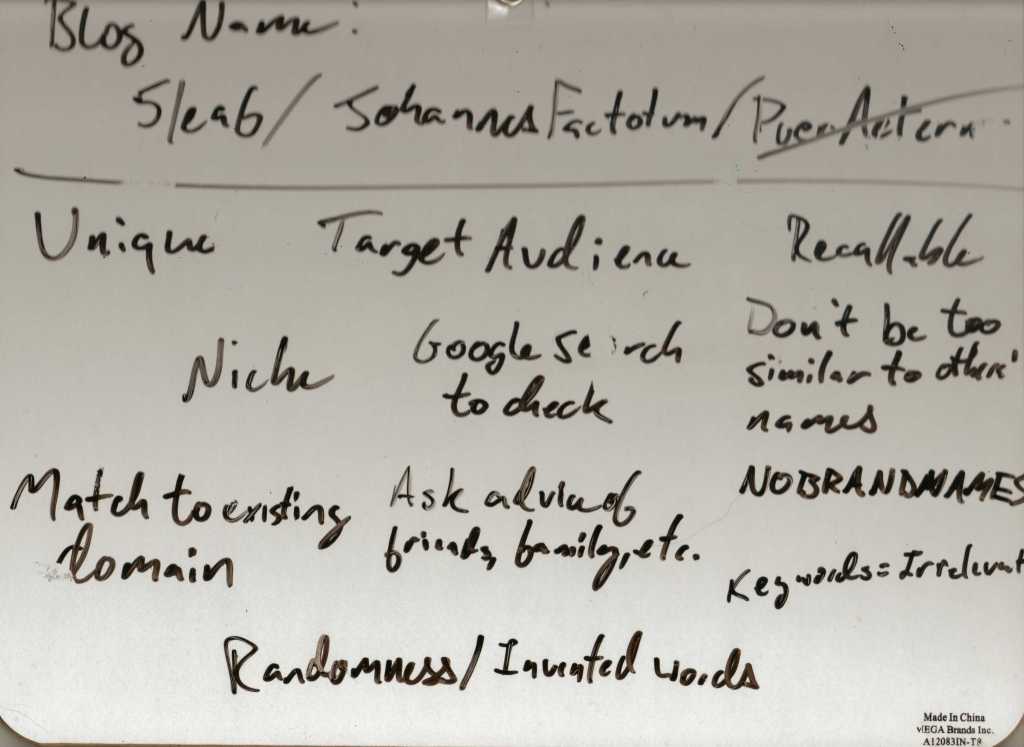 Blog Name:
Sleab/ Johannes Factotum/ Puer Aetern
Unique Target Audience Recallable
Niche
Google Search
to check
Don't be too
similar to others'
names
Match to existing
domain
Ask advice of
friends, family, etc.
NO BRAND NAMES
Keywords = Irrelevant
Randomness/ Invented words
Made In China
vIEGA Brands Inc.
A12083IN-T8